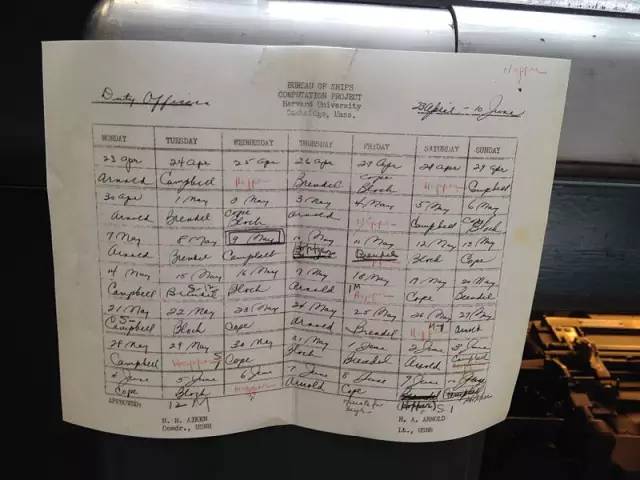 Hopper
BUREAU OF SHIPS
COMPUTATION PROJECT
Harvard University
Cambridge, Mass.
Duty Officer
23 April - 10 June
MONDAY TUESDAY WEDNESDAY THURSDAY FRIDAY SATURDAY SUNDAY
23 Apr 24 Apr 25 Apr 26 Apr 27 Apr 28 Apr 29 Apr
Cope
Arnold Campbell Hopper Brendel Bloch Hopper Campbell
30 Apr 1 May 2 May 3 May 4 May 5 May 6 May
Cope Cope
Arnold Brendel Bloch Arnold Hopper Campbell Bloch
7 May 8 May 9 May 10 May 11 May 12 May 13 May
Arnold Brendel Campbell Brendel Bloch Cope
14 May 15 May 16 May 17 May 18 May 19 May 20 May
Campbell Brendel Bloch Arnold Hopper Cope Brendel
21 May 22 May 23 May 24 May 25 May 26 May 27 May
Campbell Bloch Cope Arnold Brendel Arnold
28 May 29 May 30 May 31 May 1 June 2 June 3 June
Campbell Hopper Cope Bloch Brendel Arnold Campbell
4 June 5 June 6 June 7 June 8 June 9 June 10 June
Cope Bloch Hopper Arnold Cope Brendel Campbell
(Hopper)
APPROVED
H. H. AIKEN
Comdr., USNR
H. A. ARNOLD
Lt., USNR